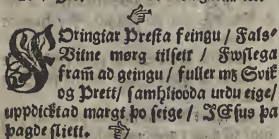 HOringiar Presta feingu / Fals⸗
Vitne mørg tilsett / Fwslega
framm ad geingu / fuller mz Svik
og Prett / samhlioooda urdu eige /
uppdicktad margt þo seige / JEsus þa
þagde sliett.